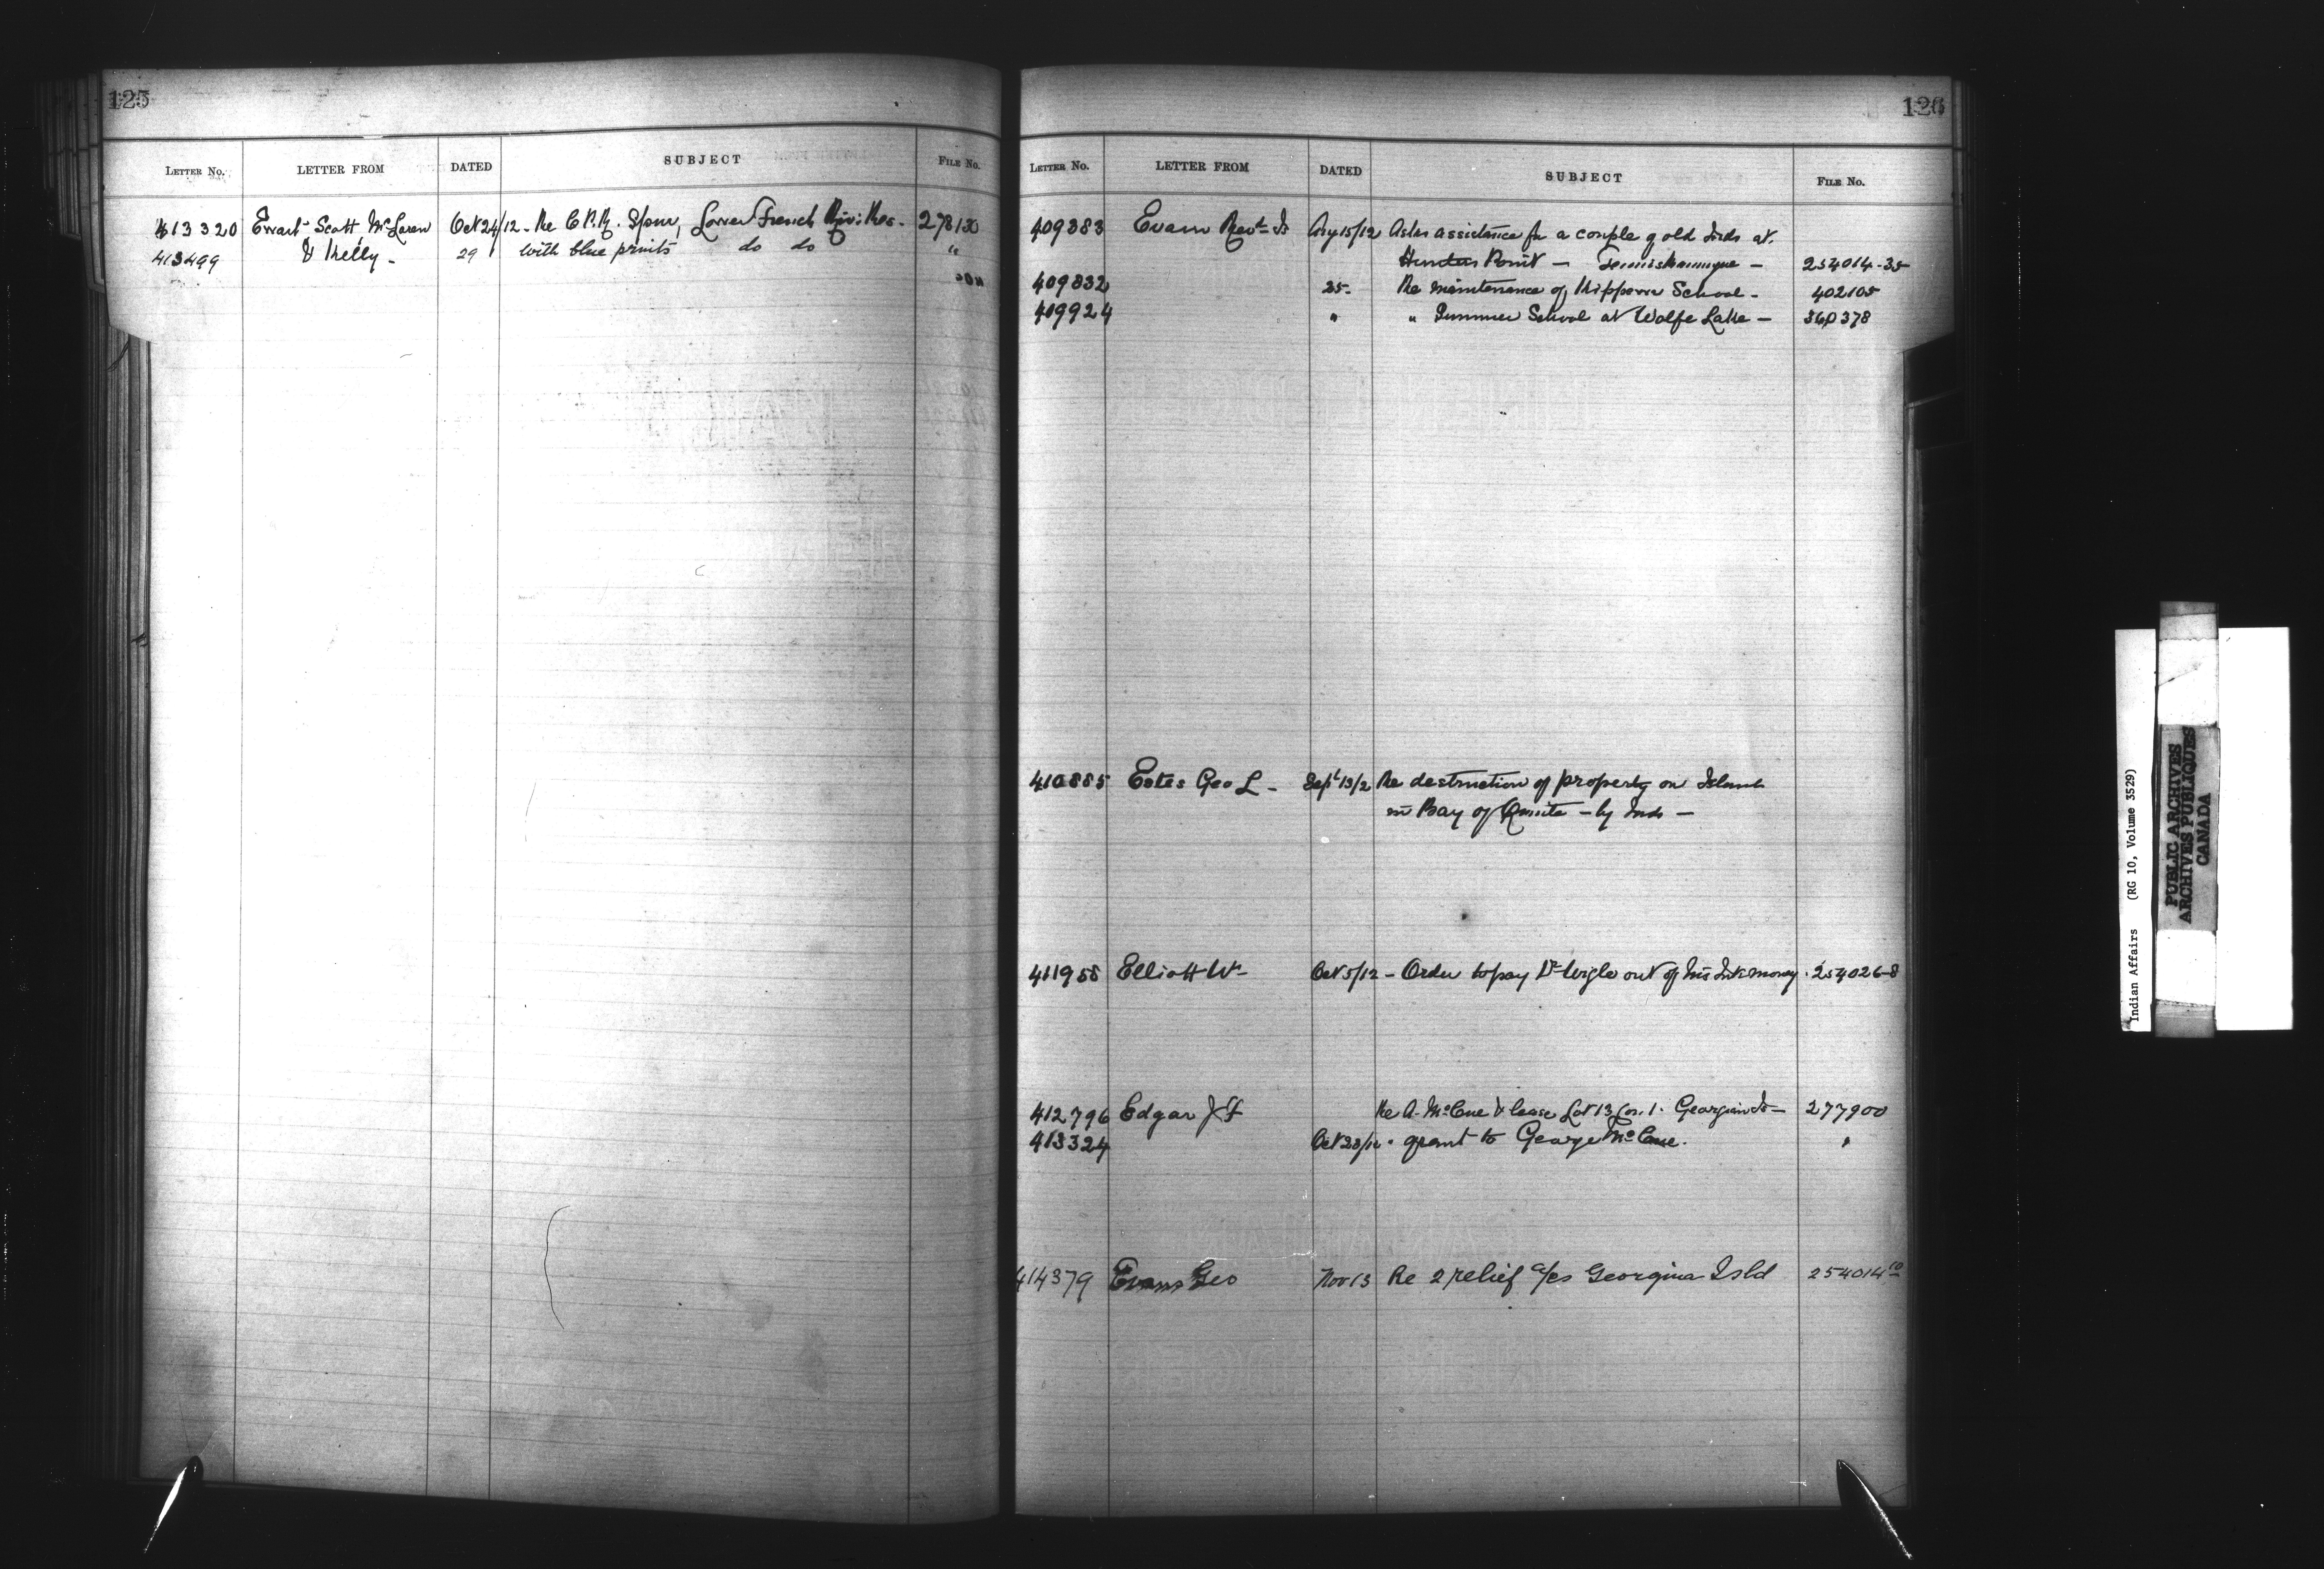 125
LETTER NO. LETTER FROM DATED SUBJECT FILE NO.
413320 Ewart Scott McLaren Oct 24/12 - Re C.P.R. Spur, Lower French Riv: Res. - 278130
413499 & Kelly - 29 with blue prints do do "
126
LETTER NO. LETTER FROM DATED SUBJECT FILE NO.
409383 Evain Revd Is Aug 15/12 Asks assistance for a couple of old Inds at
Hunters Point - Temiskamingue - 254014-35
409832 25- Re maintenance of Kippewa School - 402105
409924 " " Summer School at Wolfe Lake - 360378
410885 Estes Geo L - Sept 13/12 Re destruction of property on Island
in Bay of Quinte - by Inds -
411955 Elliott Wm Oct 5/12 - Order to pay Dr Wigle out of his Int: money - 254026-8
412796 Edgar J F Re A. McCue & lease Lot 13 Con. 1. Georgina Is - 277900
413324 Oct 23/12 " grant to George McCue. "
414379 Evans Geo Nov 13 Re 2 relief a/cs Georgina Isld 254014-10
Indian Affairs (RG 10, Volume 3529)
PUBLIC ARCHIVES
ARCHIVES PUBLIQUES
CANADA